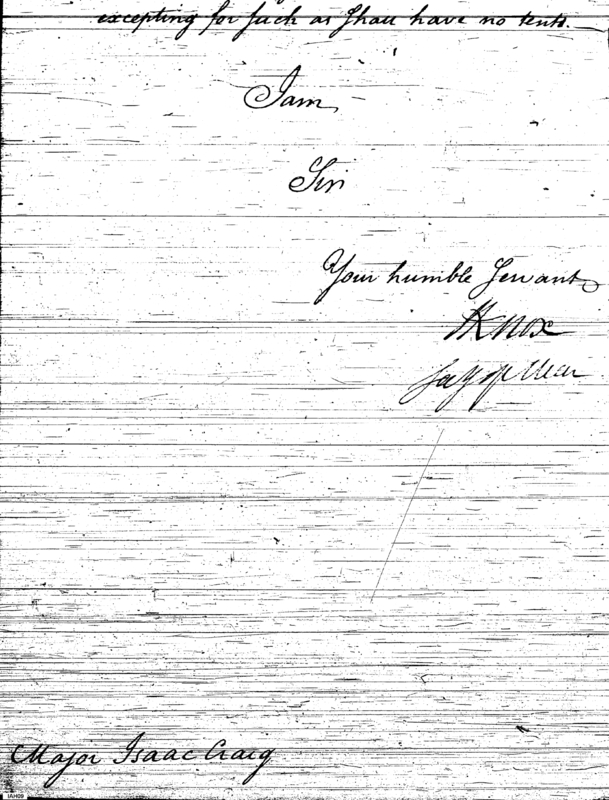 excepting for such as shall have no tents.
I am
Sir
Your humble Servant
HKnox
Secy of War
Major Isaac Craig